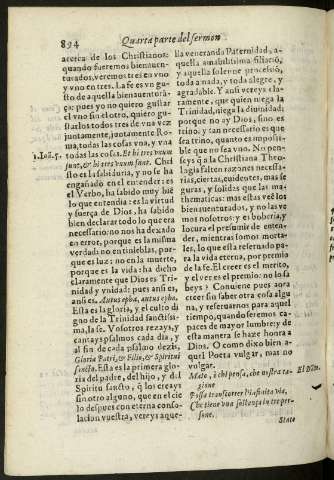 894
Quarta parte del sermon
acerca de los Christianos:
quando fueremos bienauen-
turados, veremos tres en vno
y vno en tres. La fe es vn gu-
sto de aquella bienauentura-
ça: pues yo no quiero gustar
el vno sin el otro, quiero gu-
starlos todos tres de vna vez
juntamente, juntamente Ro-
ma, todas las cosas vna, y vna
1. Ioã. 5.
todas las cosas. Et hi tres vnum
sunt, & hi tres vnum sunt. Chri-
sto es la sabiduria, y no se ha
engañado en el entender: es
el Verbo, ha sabido muy biẽ
lo que entendia: es la virtud
y fuerça de Dios, ha sabido
bien declarar todo lo que era
necessario: no nos ha dexado
en error, porque es la misma
verdad: no en tinieblas, por-
que es luz: no en la muerte,
porque es la vida: ha dicho
claramente que Dios es Tri-
nidad y vnidad: pues ansi es,
ansi es. Autus epha, autus epha.
Esta es la gloria, y el culto di
gno de la Trinidad sanctissi-
ma, la fe. Vosotros rezays, y
cantays psalmos cada dia, y
al fin de cada psalmo dezis,
Gloria Patri, & Filio, & Spiritui
sancto. Esta es la primera glo-
ria del padre, del hijo, y del
Spiritu sancto, q̃ los creays
sin otro alguno, que en el cie
lo despues con eterna conso-
lacion vuestra, vereys aque-
lla veneranda Paternidad, a-
quella amabilissima filiació,
y aquella solenne processiõ,
toda a nada, y toda alegre, y
agradable. Y ansi vereys cla-
ramente, que quien niega la
Trinidad, niega la diuinidad:
porque no ay Dios, sino es
trino. y tan necessario es que
sea trino, quanto es impossi-
ble que no sea vno. No pen-
seys q̃ a la Christiana Theo-
logia falten razones necessa-
rias, ciertas, euidentes, mas se
guras, y solidas que las ma-
thematicas: mas estas veẽ los
bienauenturados, y no las ve
mos nosotros: y es boberia, y
locura el presumir de enten-
der, mientras somos morta-
les, lo que està reseruado pa-
ra la vida eterna, por premio
de la fe. El creer es el merito,
y el ver es el premio: no lo sa
beys? Conuiene pues aora
creer sin saber otra cosa algu
na, y reseruarnos para aquel
tiempo, quando seremos ca-
paces de mayor lumbre: y de
esta manera se haze honra a
Dios. O como dixo bien a-
quel Poeta vulgar, mas no
vulgar.
Mato, è chi pensa, che nostra ra-
gione
Possa transcorrer l'infinita via,
Che tiene vna sostanza in tre per-
sone.
State